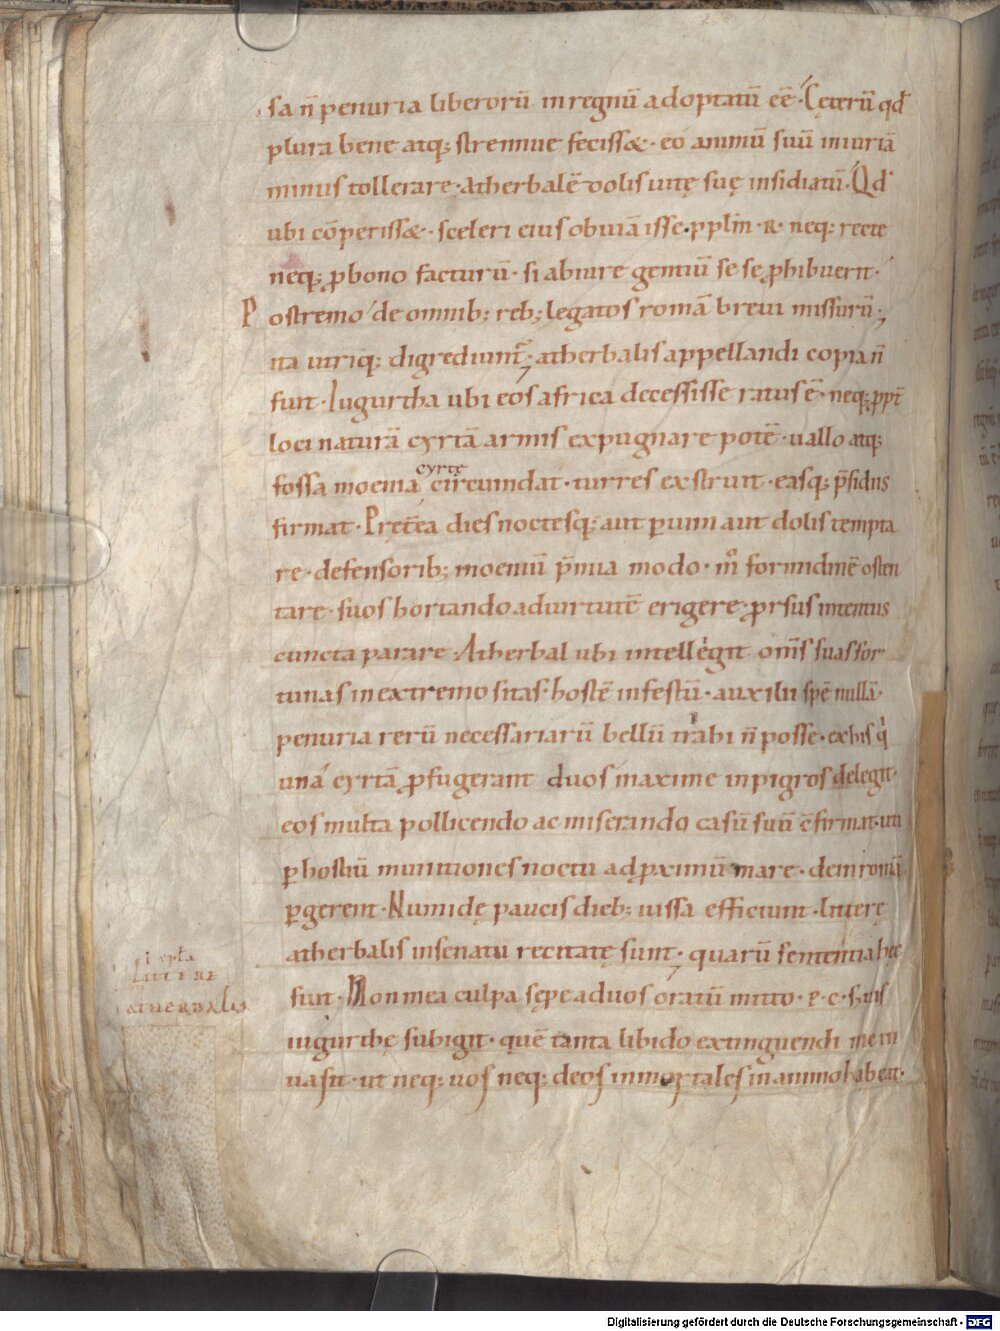 sa n̄ penuria liberorū in regnū adoptatū eē · Cęterū qđ
plura bene atq; strennue fecisset · eo animū suū iniuriā
minus tollerare · Atherbalē dolis uitę suę insidiatū · Qđ
ubi cōperisset · sceleri eius obuiā isse · pplm̄ · R · neq: recte
neq; ꝓ bono facturū · si ab iure gentiū sese ꝓhibuerit ·
Postremo de omnib; reb; legatos romā breui missurū ;
ita utriq; digrediunt᷑ ; atherbalis appellandi copia n̄
fuit · Iugurtha ubi eos africa decessisse ratus ē · neq; ppt̄
loci naturā cyrtā armis expugnare potē · uallo atq;
cyrtę
fossa moenia circumdat · turres exstruit · easq; p̄sidiis
firmat · Pręt̄ea dies noctesq; aut ꝑ uim aut dolis tempta
re · defensorib; moeniū p̄mia modo · m̊ formidinē osten
tare · suos hortando ad uirtutē erigere ; ꝓrsus intentus
cuncta parare · Atherbal ubi intellegit om̄s suas for
tunas in extremo sitas · hostē infestū · auxilii spē nullā ·
penuria rerū necessariarū bellū trahi n̄ posse · ex his q̇
una cyrtā ꝓfugerant duos maxime inpigros delegit ·
eos multa pollicendo ac miserando casū suū c̄firmat · uti
ꝑ hostiū munitiones noctu ad ꝓximū mare · dein romā
ꝑgerent · Numidę paucis dieb; iussa efficiunt · litterę
atherbalis in senatu recitatę sunt · quarū sententia hec
fuit · Non mea culpa sępe ad uos oratū mitto · P · C · s; uis
iugurthę subigit · quē tanta libido extinguendi me in
uasit · ut neq; uos neq; deos inmortales in animo habeat ·
LITTERE
ATHERBALIS
Digitalisierung gefördert durch die Deutsche Forschungsgemeinschaft - DFG